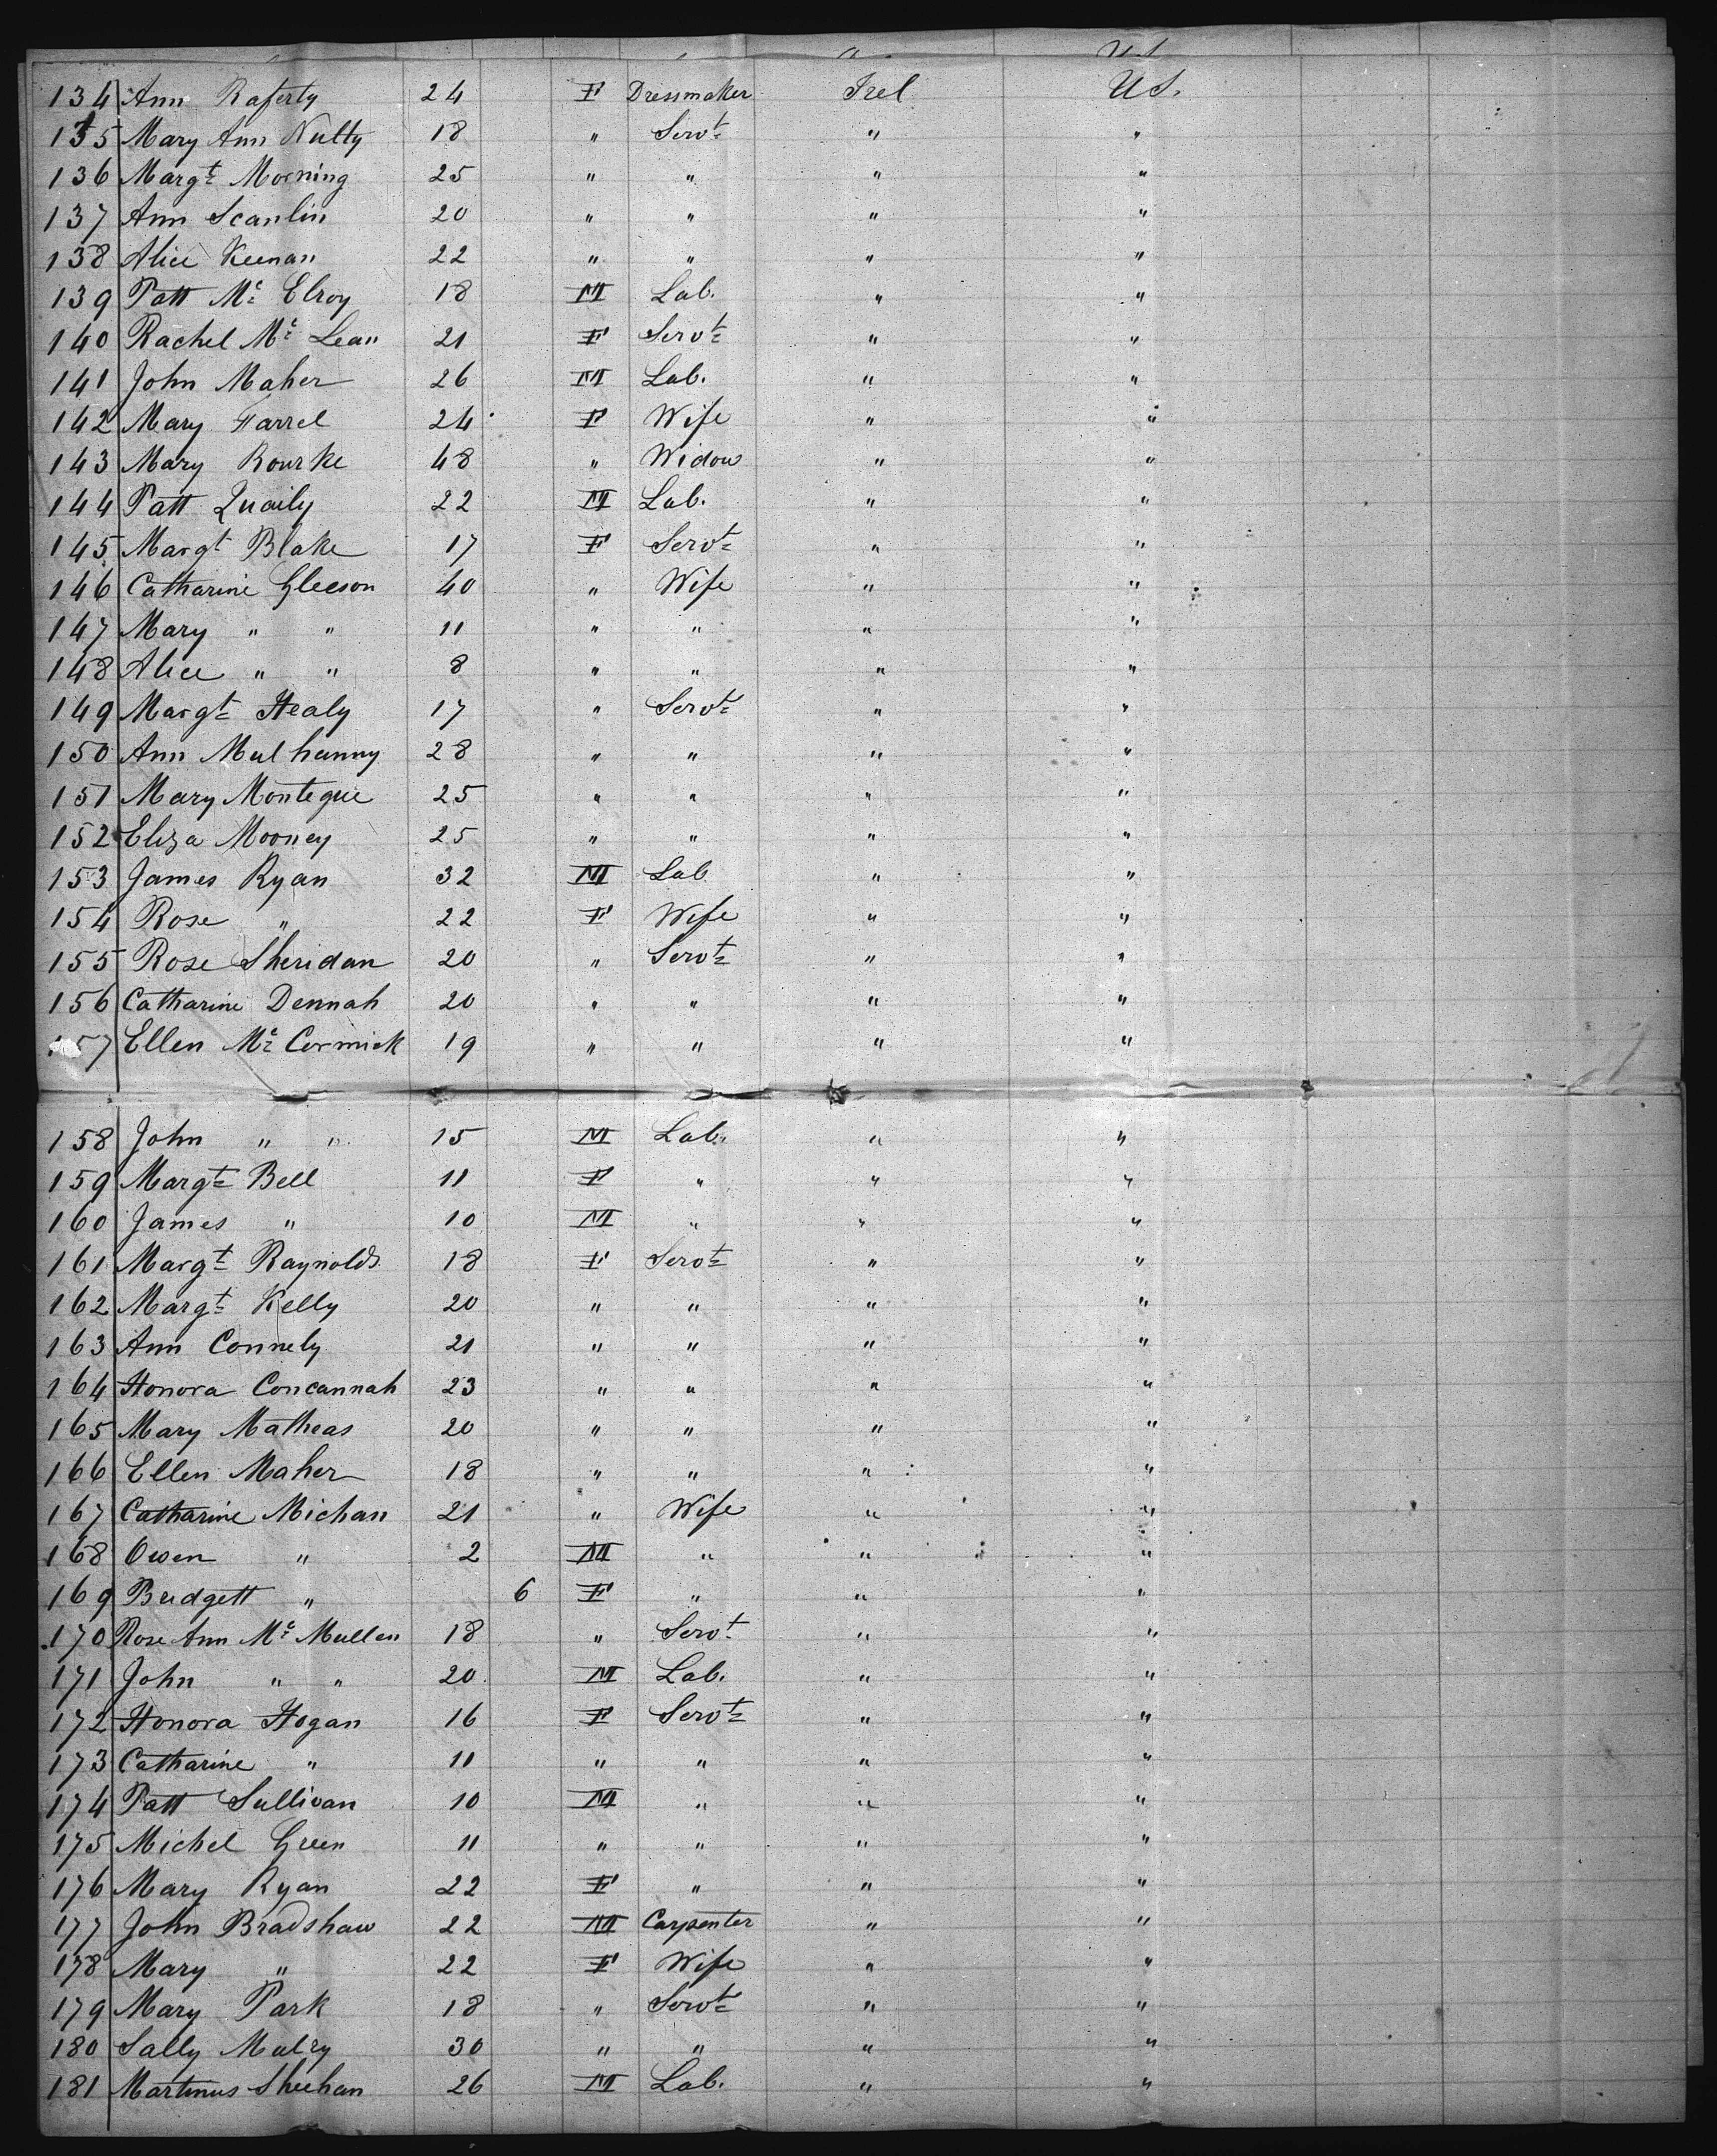 134 Ann Raferty 24 F Dressmaker Irel US.
135 Mary Ann Nulty 18 " Servt " "
136 Margt Morning 25 " " " "
137 Ann Scanlin 20 " " " "
138 Alice Keenan 22 " " " "
139 Patt Mc Elroy 18 M Lab. " "
140 Rachel Mc Lean 21 F Servt " "
141 John Maher 26 M Lab. " "
142 Mary Farrel 24 F Wife " "
143 Mary Rourke 48 " Widow " "
144 Patt Quaily 22 M Lab. " "
145 Margt Blake 17 F Servt " "
146 Catharine Gleeson 40 " Wife " "
147 Mary " " 11 " " " "
148 Alice " " 8 " " " "
149 Margt Healy 17 " Servt " "
150 Ann Mulhanny 28 " " " "
151 Mary Montegue 25 " " " "
152 Eliza Mooney 25 " " " "
153 James Ryan 32 M Lab " "
154 Rose " 22 F Wife " "
155 Rose Sheridan 20 " Servt " "
156 Catharine Dennah 20 " " " "
157 Ellen Mc Cormick 19 " " " "
158 John " " 15 M Lab. " "
159 Margt Bell 11 F " " "
160 James " 10 M " " "
161 Margt Raynolds 18 F Servt " "
162 Margt Kelly 20 " " " "
163 Ann Connely 21 " " " "
164 Honora Concannah 23 " " " "
165 Mary Matheas 20 " " " "
166 Ellen Maher 18 " " " "
167 Catharine Michan 21 " Wife " "
168 Owen " 2 M " " "
169 Bridgett " 6 F " " "
170 Rose Ann Mc Mullen 18 " Servt " "
171 John " " 20 M Lab. " "
172 Honora Hogan 16 F Servt " "
173 Catharine " 11 " " " "
174 Patt Sullivan 10 M " " "
175 Michel Green 11 " " " "
176 Mary Ryan 22 F " " "
177 John Bradshaw 22 M Carpenter " "
178 Mary " 22 F Wife " "
179 Mary Park 18 " Servt " "
180 Sally Mulry 30 " " " "
181 Martinus Sheehan 26 M Lab. " "